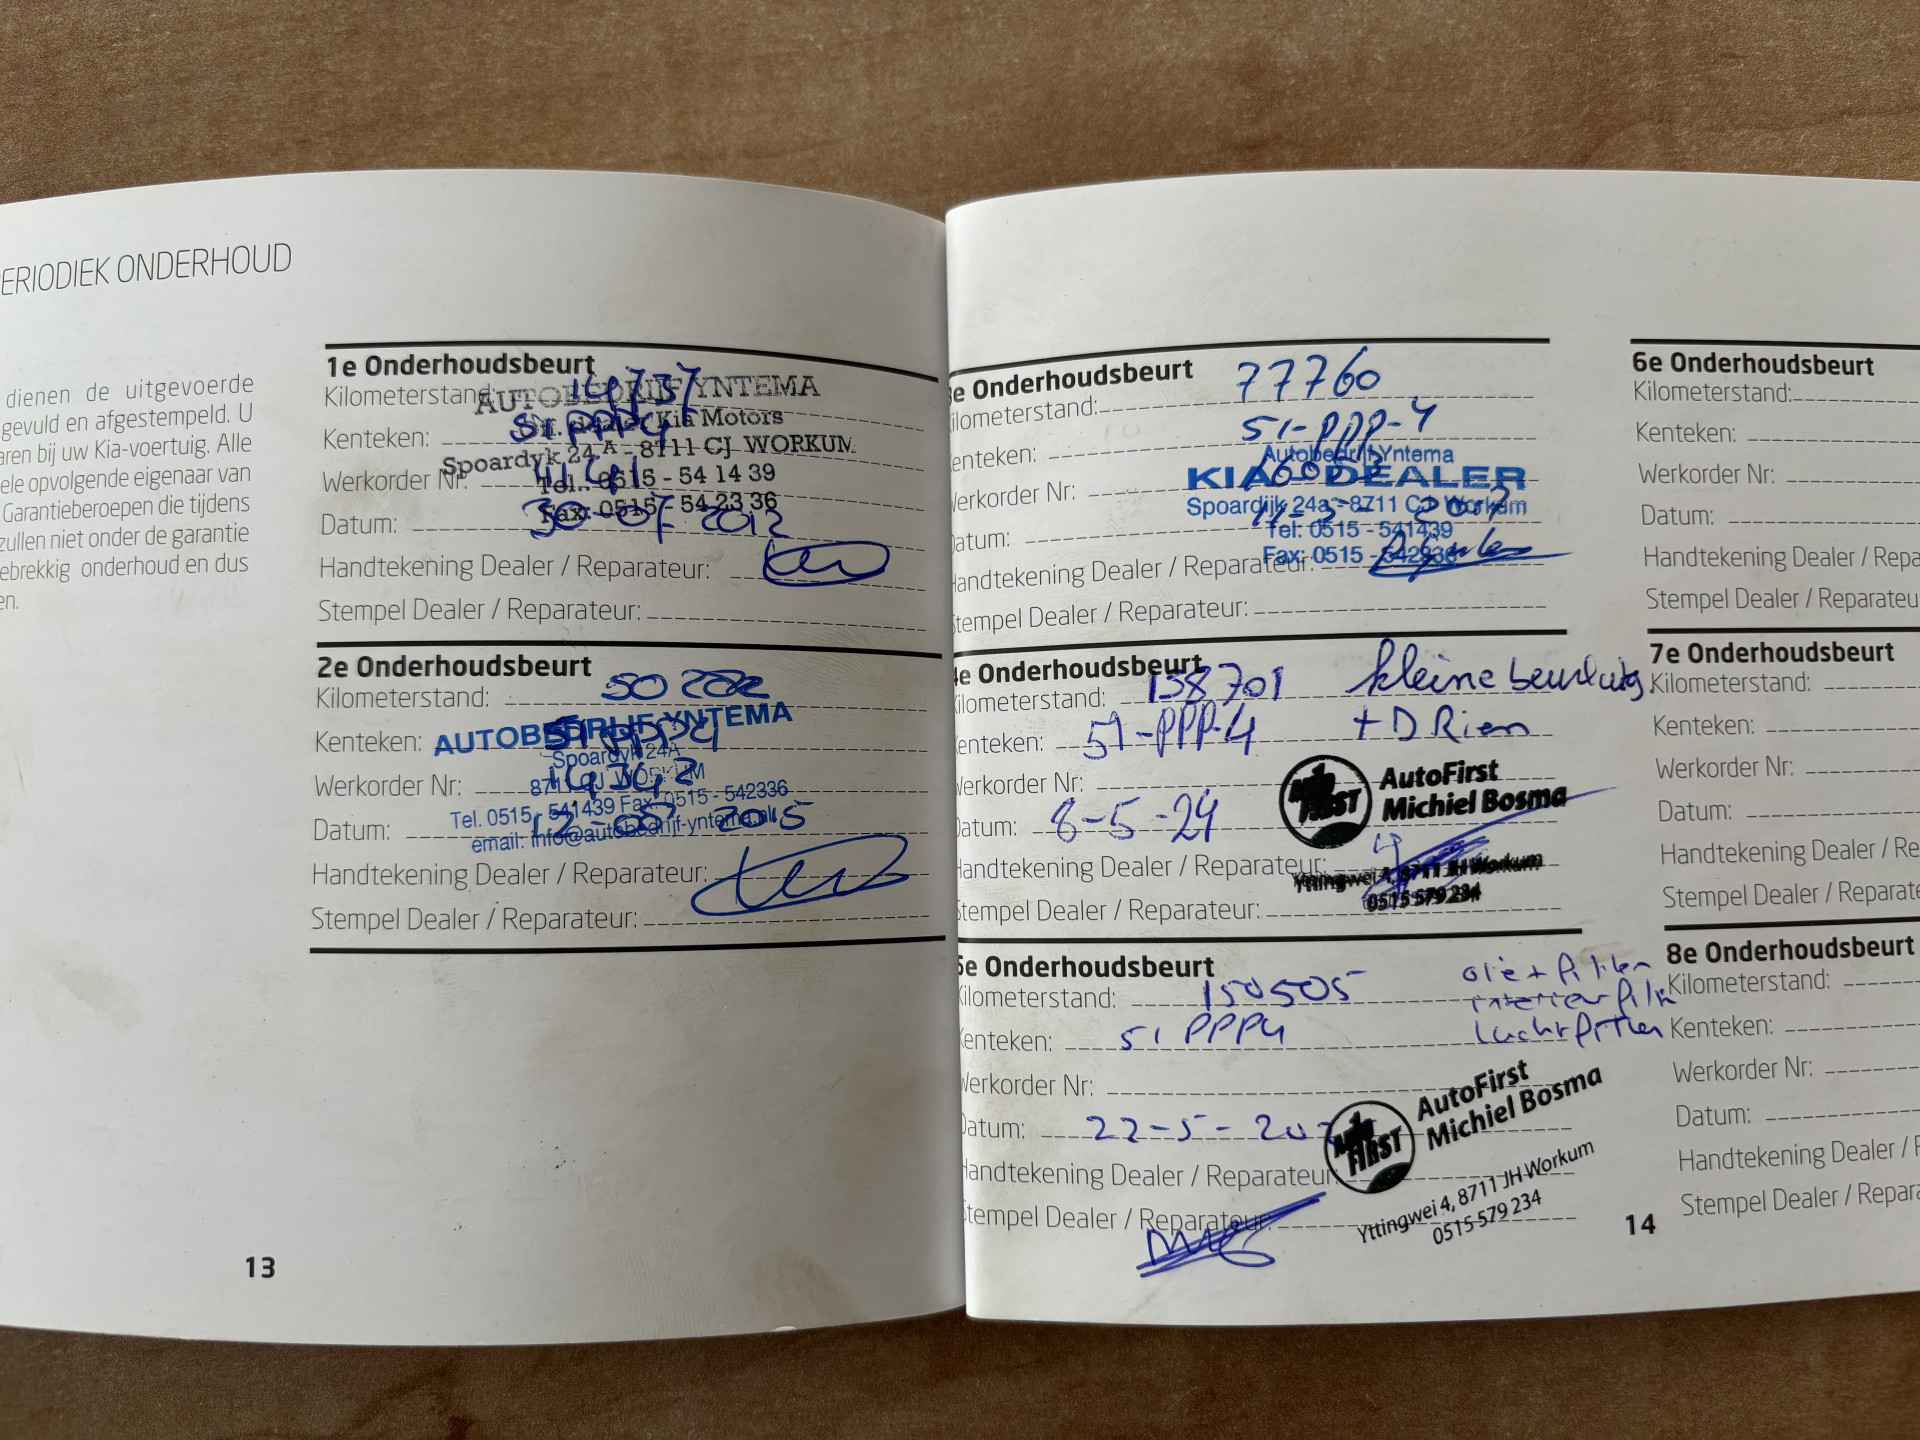 PERIODIEK ONDERHOUD
dienen de uitgevoerde
gevuld en afgestempeld. U
aren bij uw Kia-voertuig. Alle
ele opvolgende eigenaar van
Garantieberoepen die tijdens
zullen niet onder de garantie
ebrekkig onderhoud en dus
en.
1e Onderhoudsbeurt
Kilometerstand:
AUTOBEDRIJF YNTEMA
Kia Motors
Kenteken: 51 PPP4
Spoardyk 24 A - 8711 CJ WORKUM
Werkorder Nr:
Tel.: 0515 - 54 14 39
Fax: 0515 - 54 23 36
Datum: 30-07-2012
Handtekening Dealer / Reparateur:
Stempel Dealer / Reparateur:
2e Onderhoudsbeurt
Kilometerstand: 50
AUTOBEDRIJF YNTEMA
Kenteken: 51 PPP4
Spoardyk 24A
8711 CJ WORKUM
Werkorder Nr:
Tel. 0515 - 541439 Fax. 0515 - 542336
Datum: 2015
email: info@autobedrijf-yntema.nl
Handtekening Dealer / Reparateur:
Stempel Dealer / Reparateur:
13
3e Onderhoudsbeurt
Kilometerstand: 77760
Kenteken: 51-PPP-4
Autobedrijf Yntema
KIA DEALER
Werkorder Nr:
Spoardijk 24a - 8711 CJ Workum
Tel: 0515 - 541439
Datum:
Fax: 0515 - 542336
Handtekening Dealer / Reparateur:
Stempel Dealer / Reparateur:
4e Onderhoudsbeurt
Kilometerstand: 138701 kleine beurt
Kenteken: 51-PPP-4 + D Riem
Werkorder Nr:
AutoFirst
Michiel Bosma
Datum: 8-5-24
Handtekening Dealer / Reparateur:
Yttingwei 4, 8711 JH Workum
0515 579 234
Stempel Dealer / Reparateur:
5e Onderhoudsbeurt
Kilometerstand: 150505 olie + filter
interieurfilter
Kenteken: 51 PPP4 luchtfilter
Werkorder Nr:
AutoFirst
Michiel Bosma
Datum: 22-5-
Handtekening Dealer / Reparateur:
Yttingwei 4, 8711 JH Workum
0515-579 234
Stempel Dealer / Reparateur:
6e Onderhoudsbeurt
Kilometerstand:
Kenteken:
Werkorder Nr:
Datum:
Handtekening Dealer / Repa
Stempel Dealer / Reparateu
7e Onderhoudsbeurt
Kilometerstand:
Kenteken:
Werkorder Nr:
Datum:
Handtekening Dealer / Re
Stempel Dealer / Reparate
8e Onderhoudsbeurt
Kilometerstand:
Kenteken:
Werkorder Nr:
Datum:
Handtekening Dealer /
Stempel Dealer / Repara
14